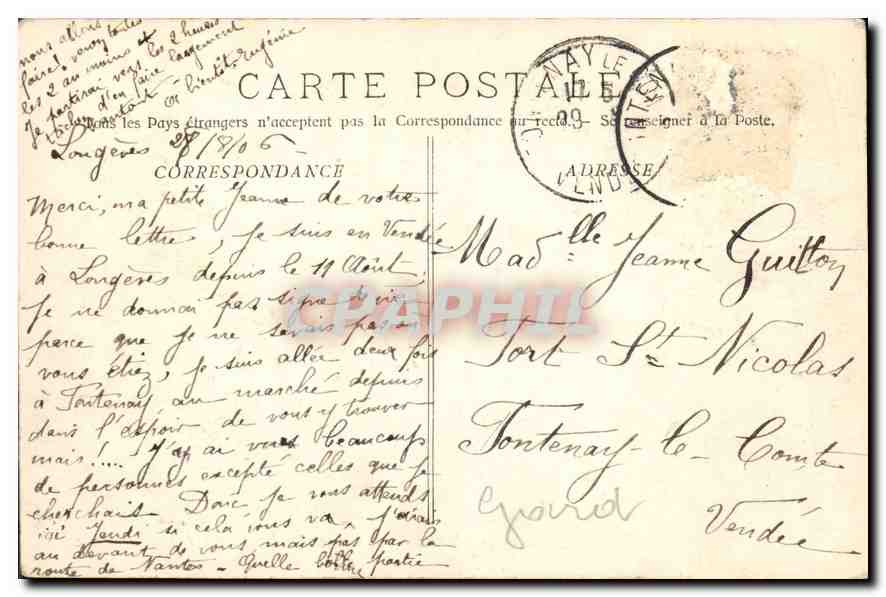 nous allons
faire! venez toutes
les 2 au moins et
Je partirai vers les 2 heures
tâchons d'en faire largement
autant. à bientôt Eugénie
CARTE POSTALE
Tous les Pays étrangers n'acceptent pas la Correspondance au recto. — Se renseigner à la Poste.
Longèves 28/8/06
CORRESPONDANCE
ADRESSE
Merci, ma petite Jeanne de votre
bonne lettre, je suis en Vendée
à Longèves depuis le 11 Août,
Je ne donnais pas signe de vie
parce que je ne savais pas où
vous étiez, je suis allée deux fois
à Fontenay au marché depuis
dans l'espoir de vous y trouver
mais!.... J'y ai vu beaucoup
de personnes excepté celles que je
cherchais. Donc je vous attends
ici Jeudi si cela vous va, j'irais
au devant de vous mais pas par la
route de Nantes — Quelle belle partie
Madelle Jeanne Guitton
Port St Nicolas
Fontenay-le-Comte
Vendée
Gard
FONTENAY LE
VENDÉE
CPAPHIL